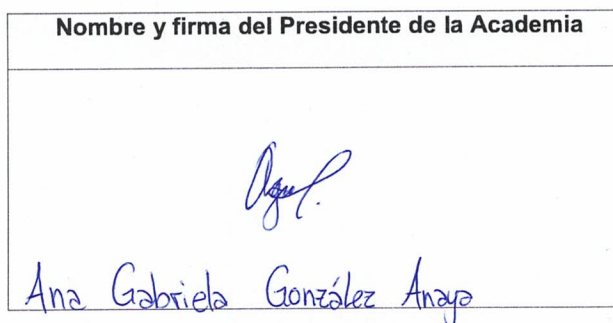 Nombre y firma del Presidente de la Academia
Ana Gabriela González Anaya